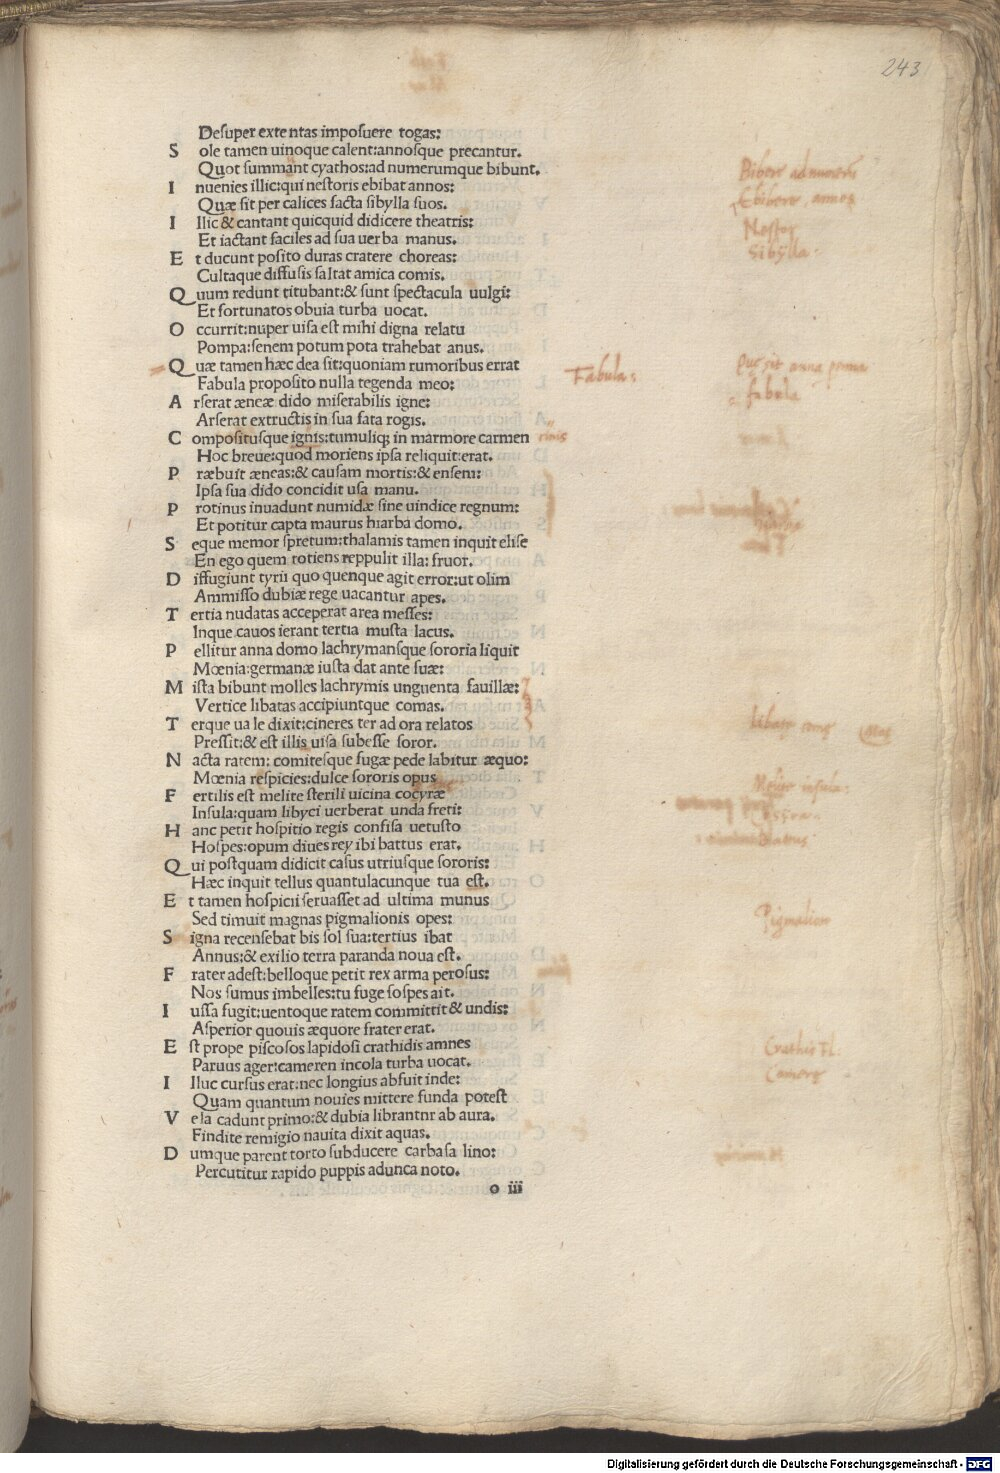 243
Desuper extentas imposuere togas:
S ole tamen uinoque calent:annosque precantur.
Quot summant cyathos:ad numerumque bibunt.
I nuenies illic:qui nestoris ebibat annos:
Quæ sit per calices facta sibylla suos.
I llic & cantant quicquid didicere theatris:
Et iactant faciles ad sua uerba manus.
E t ducunt posito duras cratere choreas:
Cultaque diffusis saltat amica comis.
Q uum redunt titubant:& sunt spectacula uulgi:
Et fortunatos obuia turba uocat.
O ccurrit:nuper uisa est mihi digna relatu
Pompa:senem potum pota trahebat anus.
Q uæ tamen hæc dea sit:quoniam rumoribus errat
Fabula proposito nulla tegenda meo:
A rserat æneæ dido miserabilis igne:
Arserat extructis in sua fata rogis.
C ompositusque ignis:tumuliq; in marmore carmen
Hoc breue:quod moriens ipsa reliquit:erat.
P ræbuit æneas:& causam mortis:& ensem:
Ipsa sua dido concidit usa manu.
P rotinus inuadunt numidæ sine uindice regnum:
Et potitur capta maurus hiarba domo.
S eque memor spretum:thalamis tamen inquit elise
En ego quem totiens reppulit illa: fruor.
D iffugiunt tyrii quo quenque agit error:ut olim
Ammisso dubiæ rege uacantur apes.
T ertia nudatas acceperat area messes:
Inque cauos ierant tertia musta lacus.
P ellitur anna domo lachrymansque sororia liquit
Mœnia:germanæ iusta dat ante suæ:
M ista bibunt molles lachrymis unguenta fauillæ:
Vertice libatas accipiuntque comas.
T erque ua le dixit:cineres ter ad ora relatos
Pressit:& est illis uisa subesse soror.
N acta ratem: comitesque fugæ pede labitur æquo:
Mœnia respicies:dulce sororis opus
F ertilis est melite sterili uicina cocyræ
Insula:quam libyci uerberat unda freti:
H anc petit hospitio regis confisa uetusto
Hospes:opum diues rex ibi battus erat.
Q ui postquam didicit casus utriusque sororis:
Hæc inquit tellus quantulacunque tua est.
E t tamen hospicii seruasset ad ultima munus
Sed timuit magnas pigmalionis opes:
S igna recensebat bis sol sua:tertius ibat
Annus:& exilio terra paranda noua est.
F rater adest:belloque petit rex arma perosus:
Nos sumus imbelles:tu fuge sospes ait.
I ussa fugit:uentoque ratem committit & undis:
Asperior quouis æquore frater erat.
E st prope piscosos lapidosi crathidis amnes
Paruus ager:cameren incola turba uocat.
I lluc cursus erat:nec longius abfuit inde:
Quam quantum nouies mittere funda potest
V ela cadunt primo:& dubia librantnr ab aura.
Findite remigio nauita dixit aquas.
D umque parent torto subducere carbasa lino:
Percutitur rapido puppis adunca noto.
o iii
Bibere ad numerum
Ebibere annos
Nestor
Sibylla.
Fabula:
Que sit anna perenna
fabula
Melite insula:
Pigmalion
Crathis Fl.
Camere
Digitalisierung gefördert durch die Deutsche Forschungsgemeinschaft - DFG